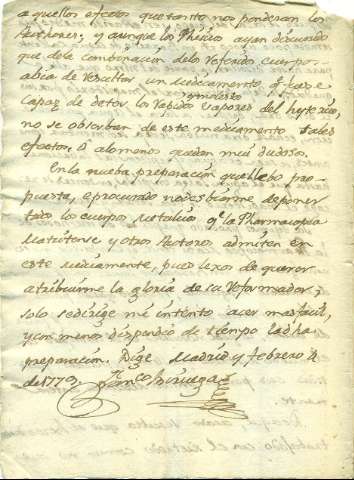 a quellos efectos que tanto nos ponderan los
Authores; y aunque los Phisicos ayan discurrido
que dela combinacion delo referido cuerpo
abia de resultar un medicamento q.e fuese
capaz de
los Vapores del hyterico,
no se observan, de este medicamento tales
efectos, ó alomenos quedan mui dudosos.
Enla nueba preparacion que llebo pro-
puesta, e procurado no desbiarme de poner
todo los cuerpos metalicos q.e la Pharmacopea
Matritense y otros Autores admiten en
este medicamento, pues lexos de querer
atribuirme la gloria de su Reformador,
solo se dirige mi intento acer mas facil,
y con menos dispendio de tiempo la dha
preparacion. Dixe Madrid y febrero 4
de 1779.